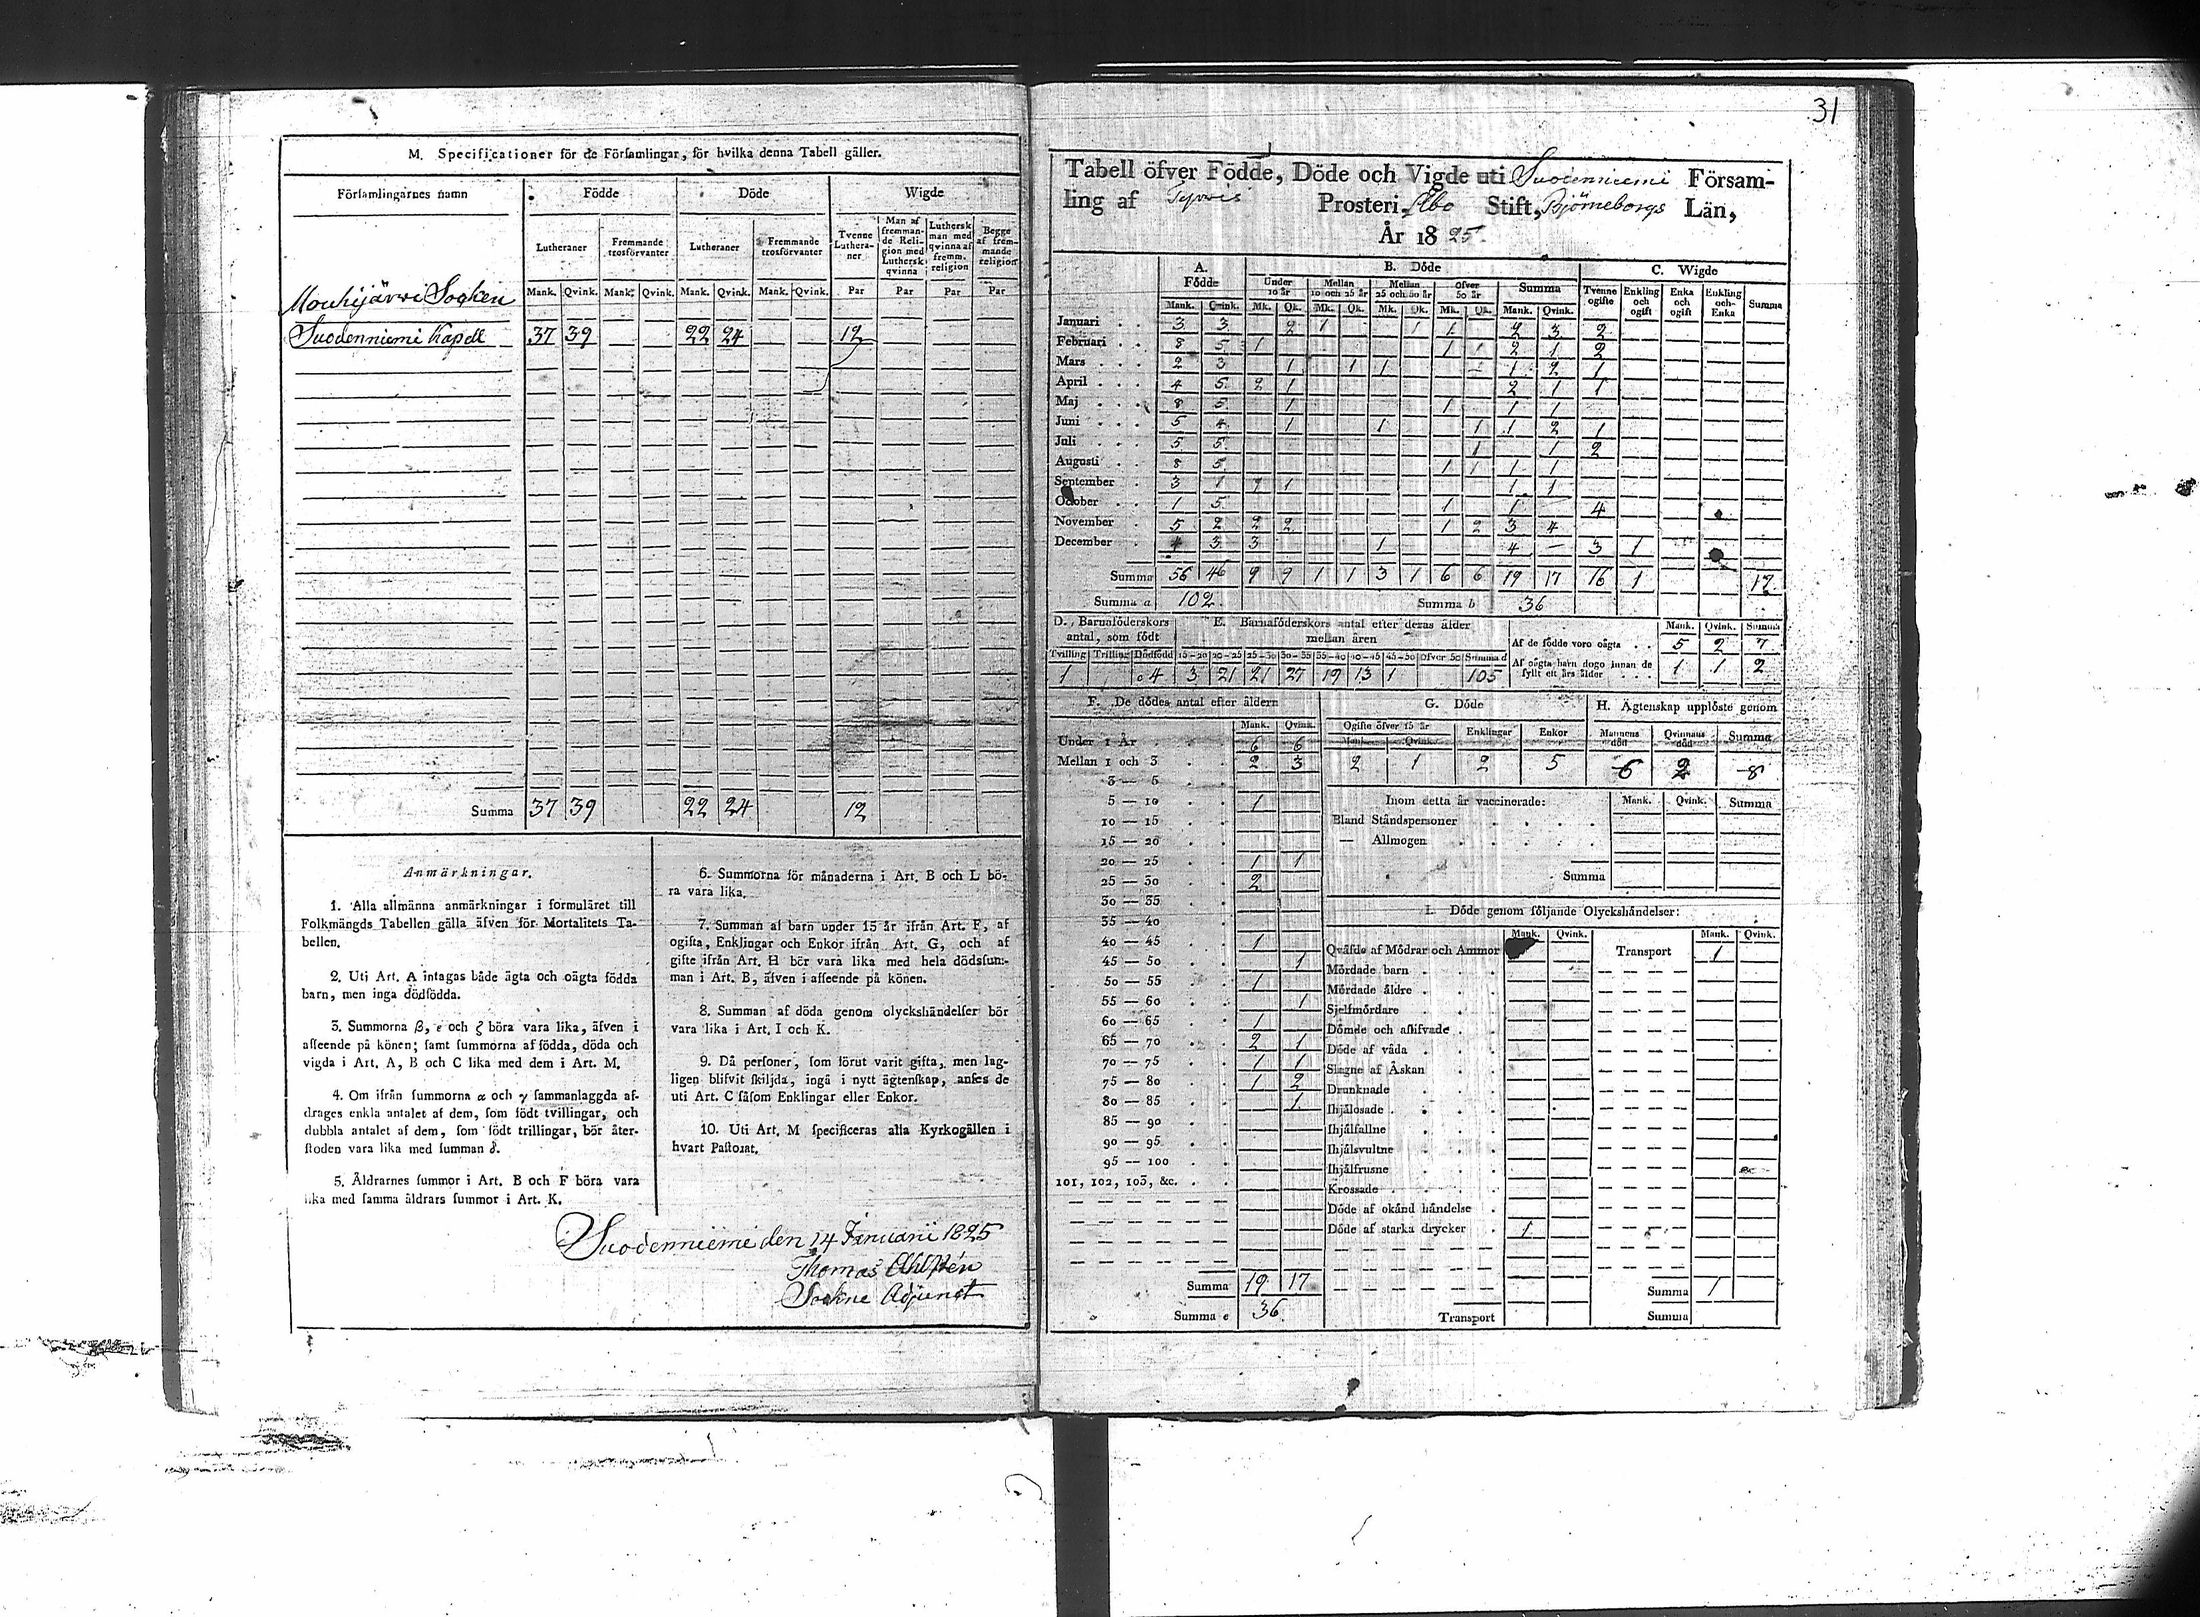 M. Specificationer för de Församlingar, för hvilka denna Tabell gäller.
Församlingarnes namn Födde Döde Wigde
Lutheraner Fremmande trosförvanter Lutheraner Fremmande trosförvanter Tvenne Lutheraner Man af fremmande Religion med Luthersk qvinna Luthersk man med qvinna af fremm. religion Begge af fremmande religion
Mank. Qvink. Mank. Qvink. Mank. Qvink. Mank. Qvink. Par Par Par Par
Mouhijärvi Socken
Suodenniemi Kapell 37 39 22 24 12
Summa 37 39 22 24 12
Anmärkningar.
1. Alla allmänna anmärkningar i formuläret till
Folkmängds Tabellen gälla äfven för Mortalitets Ta-
bellen.
2. Uti Art. A intagas både ägta och oägta födda
barn, men inga dödfödda.
3. Summorna β, ε och ζ böra vara lika, äfven i
afseende på könen; samt summorna af födda, döda och
vigda i Art. A, B och C lika med dem i Art. M.
4. Om ifrån summorna α och γ sammanlaggda af-
drages enkla antalet af dem, som födt tvillingar, och
dubbla antalet af dem, som födt trillingar, bör åter-
stoden vara lika med summan δ.
5. Åldrarnes summor i Art. B och F böra vara
lika med samma åldrars summor i Art. K.
6. Summorna för månaderna i Art. B och L bö-
ra vara lika.
7. Summan af barn under 15 år ifrån Art. F, af
ogifta, Enklingar och Enkor ifrån Art. G, och af
gifte ifrån Art. H bör vara lika med hela dödssum-
man i Art. B, äfven i afseende på könen.
8. Summan af döda genom olyckshändelser bör
vara lika i Art. I och K.
9. Då personer, som förut varit gifta, men lag-
ligen blifvit skiljda, ingå i nytt ägtenskap, anses de
uti Art. C såsom Enklingar eller Enkor.
10. Uti Art. M specificeras alla Kyrkogällen i
hvart Pastorat.
Suodenniemi den 14 Januarii 1825
Thomas Ahlstén
Sockne Adjunct
31
Tabell öfver Födde, Döde och Vigde uti Suodenniemi Försam-
ling af Tyrvis Prosteri, Åbo Stift, Björneborgs Län,
År 1825.
A. Födde B. Döde C. Wigde
Under 10 år Mellan 10 och 25 år Mellan 25 och 50 år Öfver 50 år Summa Tvenne ogifte Enkling och ogift Enka och ogift Enkling och Enka Summa
Mank. Qvink. Mk. Qk. Mk. Qk. Mk. Qk. Mk. Qk. Mank. Qvink.
Januari 3 3 2 1 1 1 2 3 2
Februari 8 5 1 1 1 2 1 2
Mars 2 3 1 1 1 1 2 1
April 4 5 2 1 2 1 1
Maj 8 5 1 1 1 1
Juni 5 4 1 1 1 1 2 1
Juli 5 5 1 1 2
Augusti 8 5 1 1 1 1
September 3 1 1 1 1
October 1 5 1 1 4
November 5 2 2 2 1 2 3 4
December 4 3 3 1 4 — 3 1
Summa 56 46 9 9 1 1 3 1 6 6 19 17 16 1 17
Summa a 102. Summa b 36
D. Barnaföderskors antal, som födt E. Barnaföderskors antal efter deras ålder mellan åren Mank. Qvink. Summa
Af de födde voro oägta 5 2 7
Tvilling Trilling Dödfödd 15-20 20-25 25-30 30-35 35-40 40-45 45-50 öfver 50 Summa d
Af oägta barn dogo innan de fyllt ett års ålder 1 1 2
1 4 3 21 21 27 19 13 1 105
F. De dödes antal efter åldern G. Döde H. Ägtenskap upplöste genom
Mank. Qvink. Ogifte öfver 15 år Enklingar Enkor Mannens död Qvinnans död Summa
Mank. Qvink.
Under 1 År 6 6
Mellan 1 och 3 2 3 2 1 2 5 6 2 8
3 — 5
5 — 10 1 Inom detta år vaccinerade: Mank. Qvink. Summa
10 — 15 Bland Ståndspersoner
15 — 20 — Allmogen
20 — 25 1 1
25 — 30 2 Summa
30 — 35
35 — 40 I. Döde genom följande Olyckshändelser:
40 — 45 1 Mank. Qvink. Mank. Qvink.
Qväfde af Mödrar och Ammor Transport 1
45 — 50 1 Mördade barn
50 — 55 1 Mördade äldre
55 — 60 1 Sjelfmördare
60 — 65 1 Dömde och aflifvade
65 — 70 2 1 Döde af våda
70 — 75 1 1 Slagne af Åskan
75 — 80 1 2 Drunknade
80 — 85 1 Ihjälosade
85 — 90 Ihjälfallne
90 — 95 Ihjälsvultne
95 — 100 Ihjälfrusne
101, 102, 103, &c. Krossade
Döde af okänd händelse
Döde af starka drycker 1
Summa 19 17 Summa 1
Summa e 36. Transport Summa